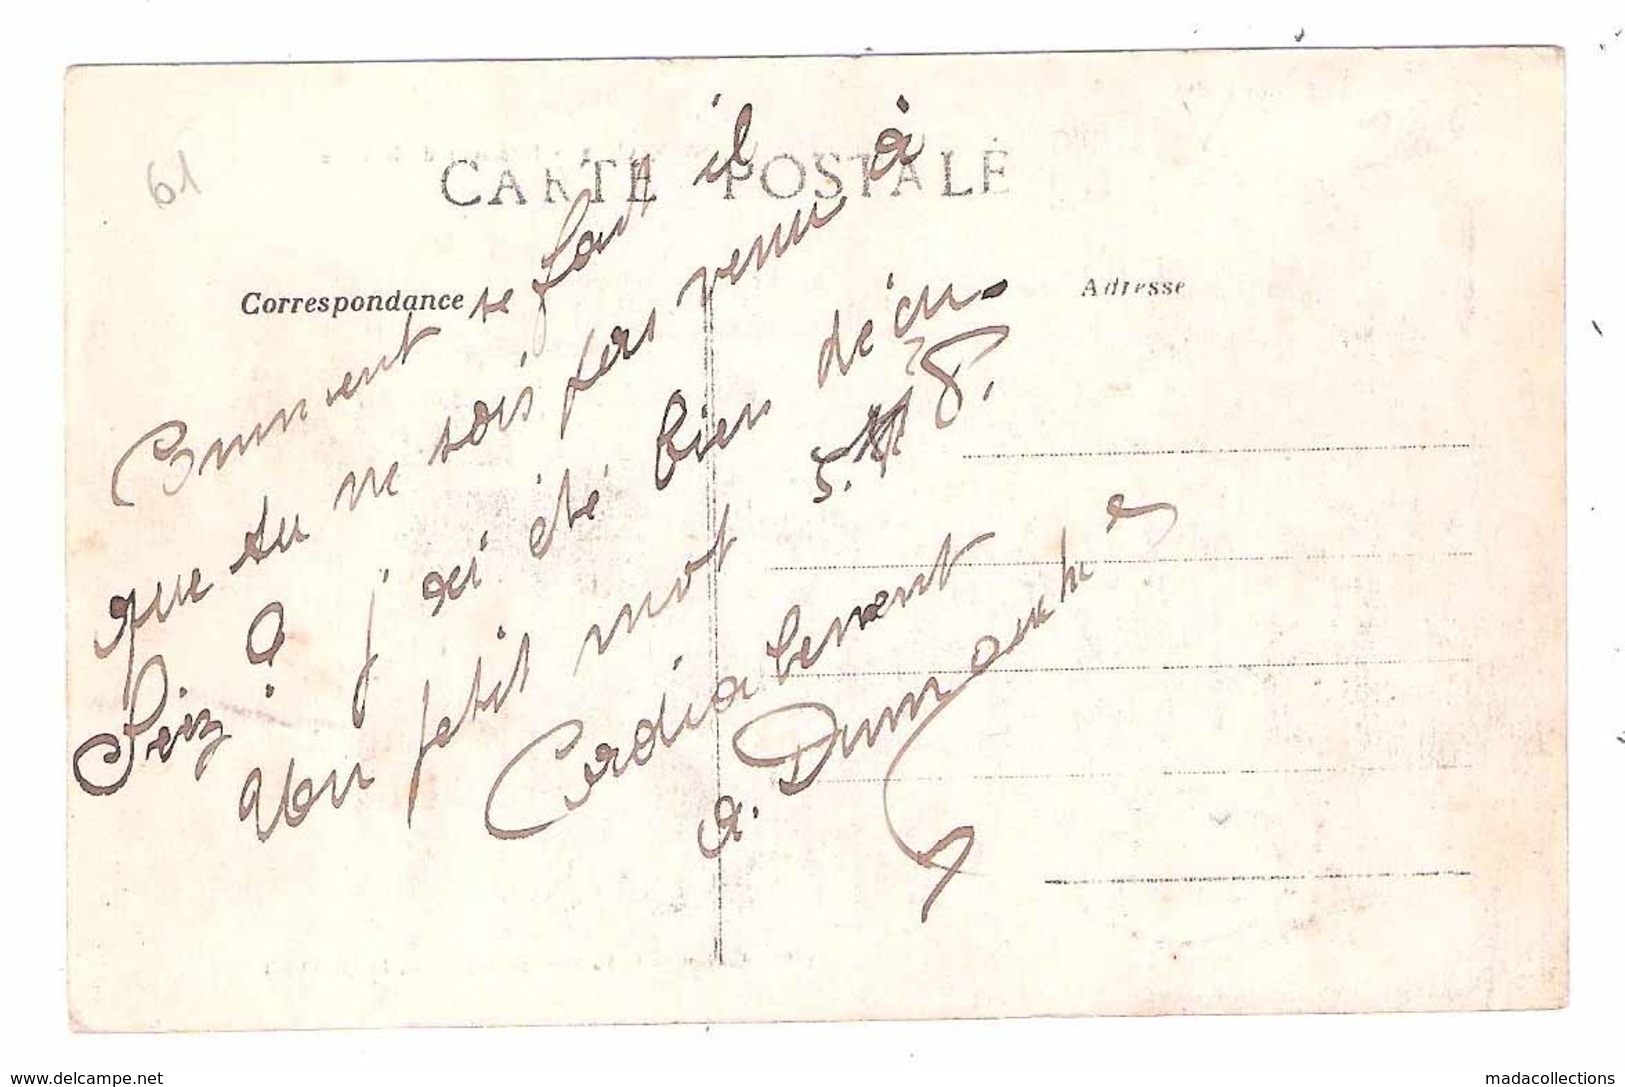 61
CARTE POSTALE
Correspondance
Adresse
Comment se fait il
que tu ne sois pas venu à
? j'ai été bien décu.
Un petit mot S.V.P.
Cordialement
a.
www.delcampe.net
madacollections